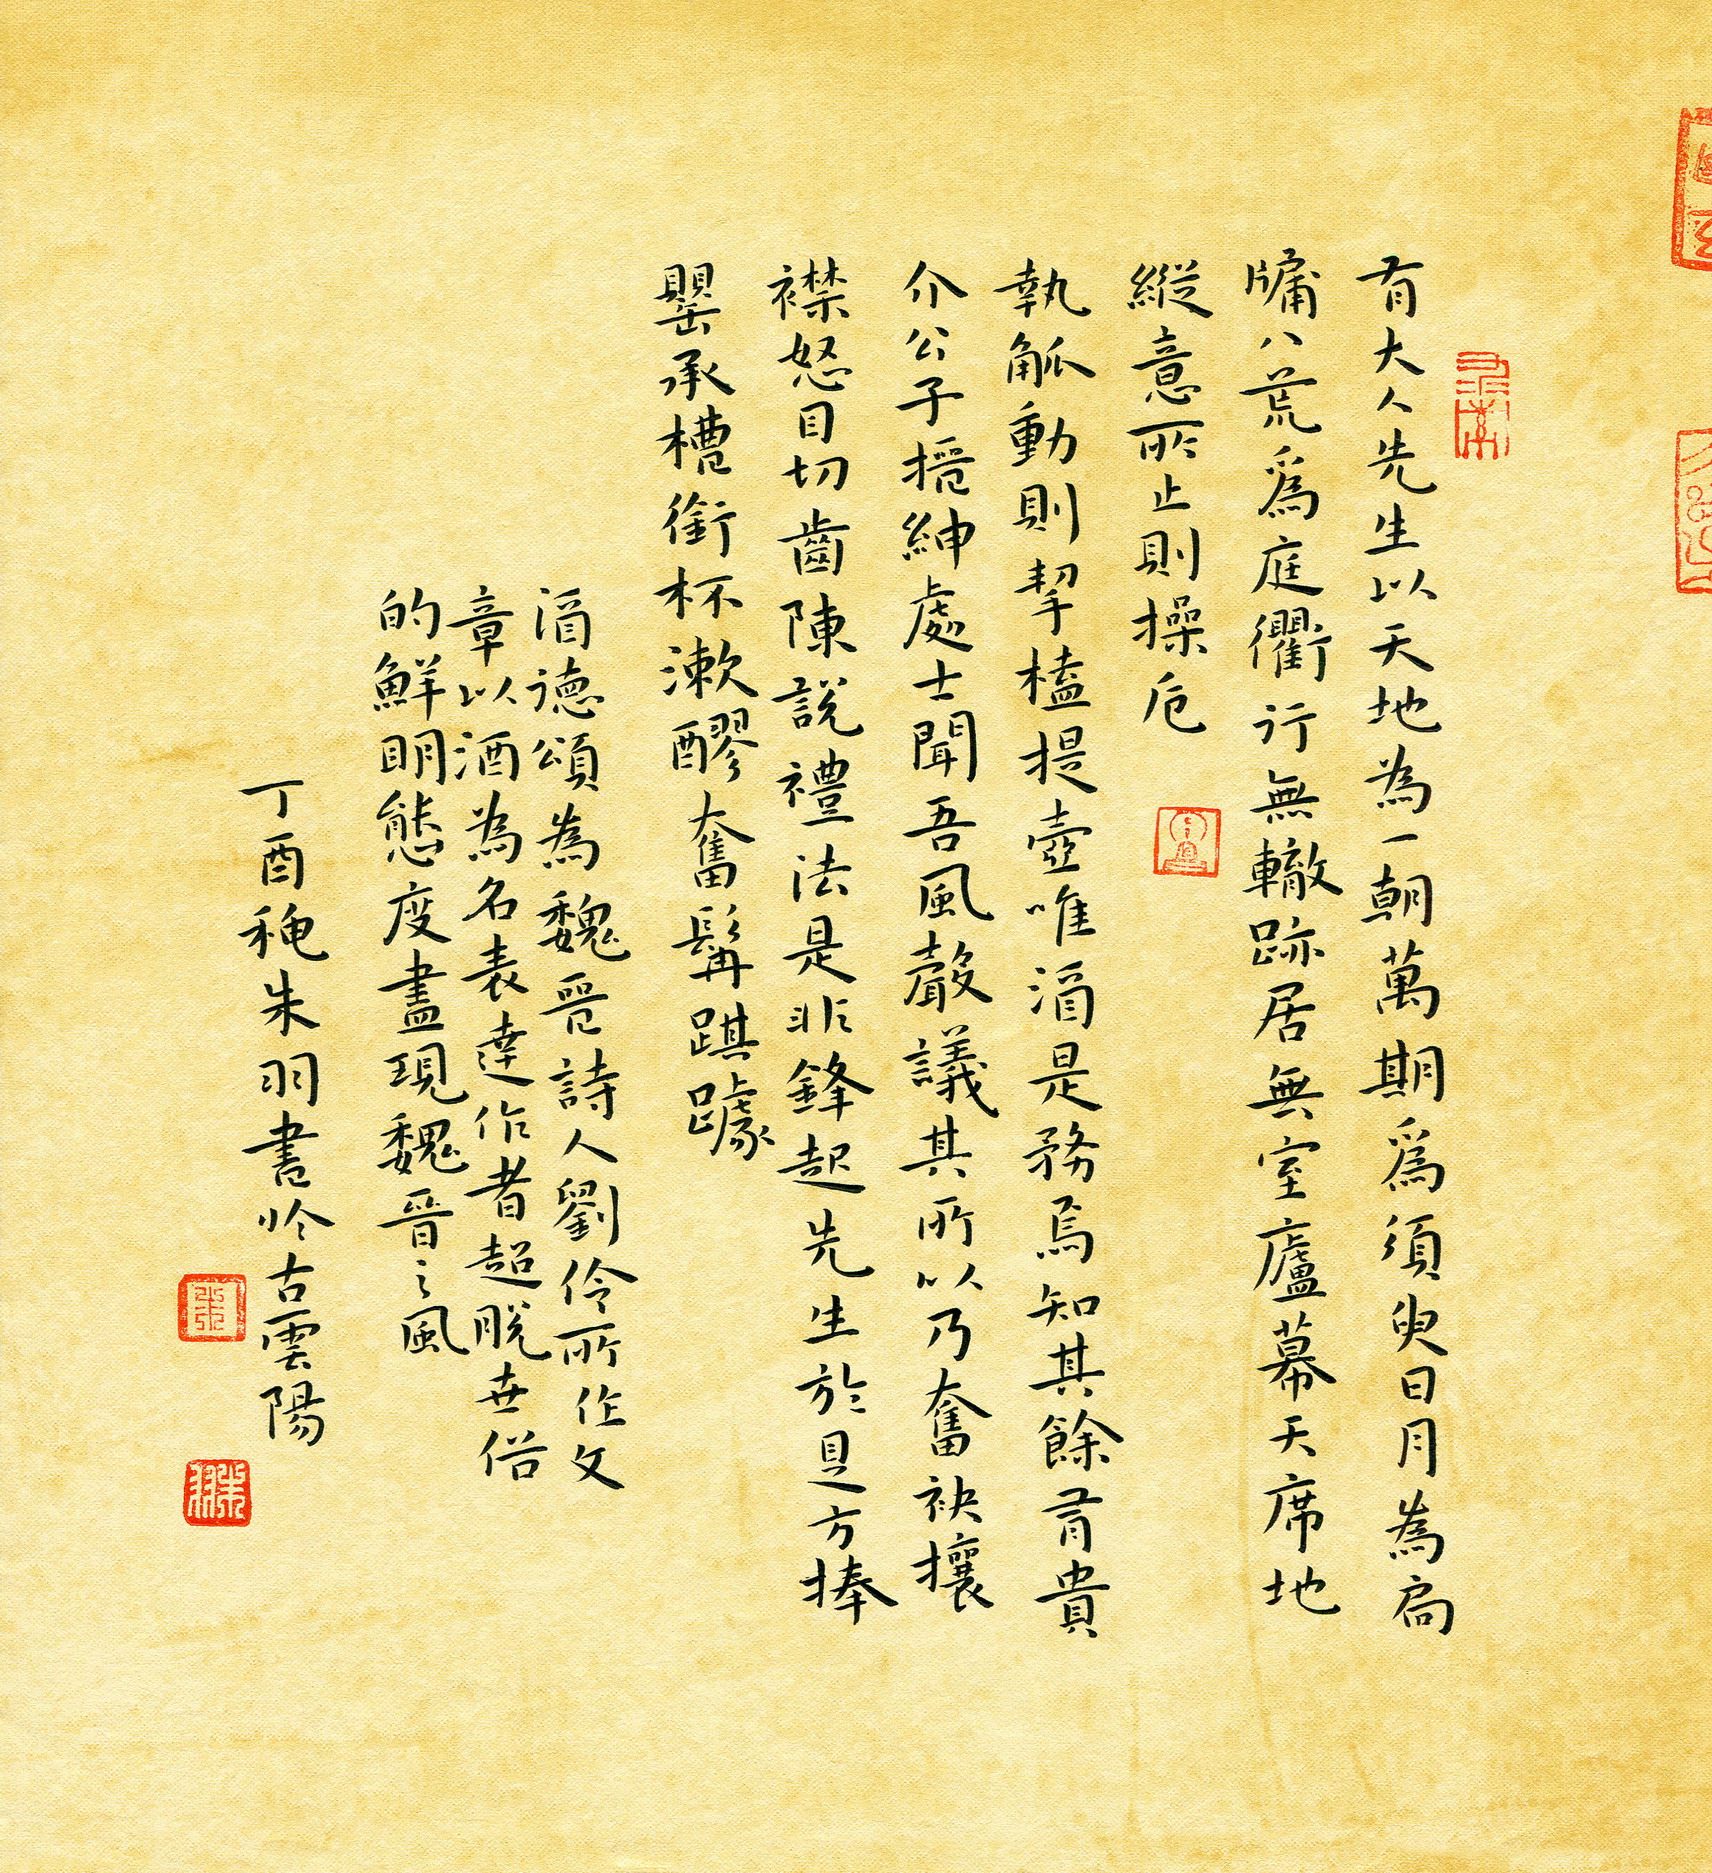 有大人先生以天地為一朝萬期爲須臾日月為扃
牖八荒爲庭衢行無轍跡居無室廬幕天席地
縱意所止則操卮
執觚動則挈榼提壺唯酒是務焉知其餘有貴
介公子搢紳處士聞吾風聲議其所以乃奮袂攘
襟怒目切齒陳說禮法是非鋒起先生於是方捧
罌承槽銜杯漱醪奮髯踑踞
酒德頌為魏晉詩人劉伶所作文
章以酒為名表達作者超脫世俗
的鮮明態度盡現魏晉之風
丁酉秋朱羽書於古雲陽